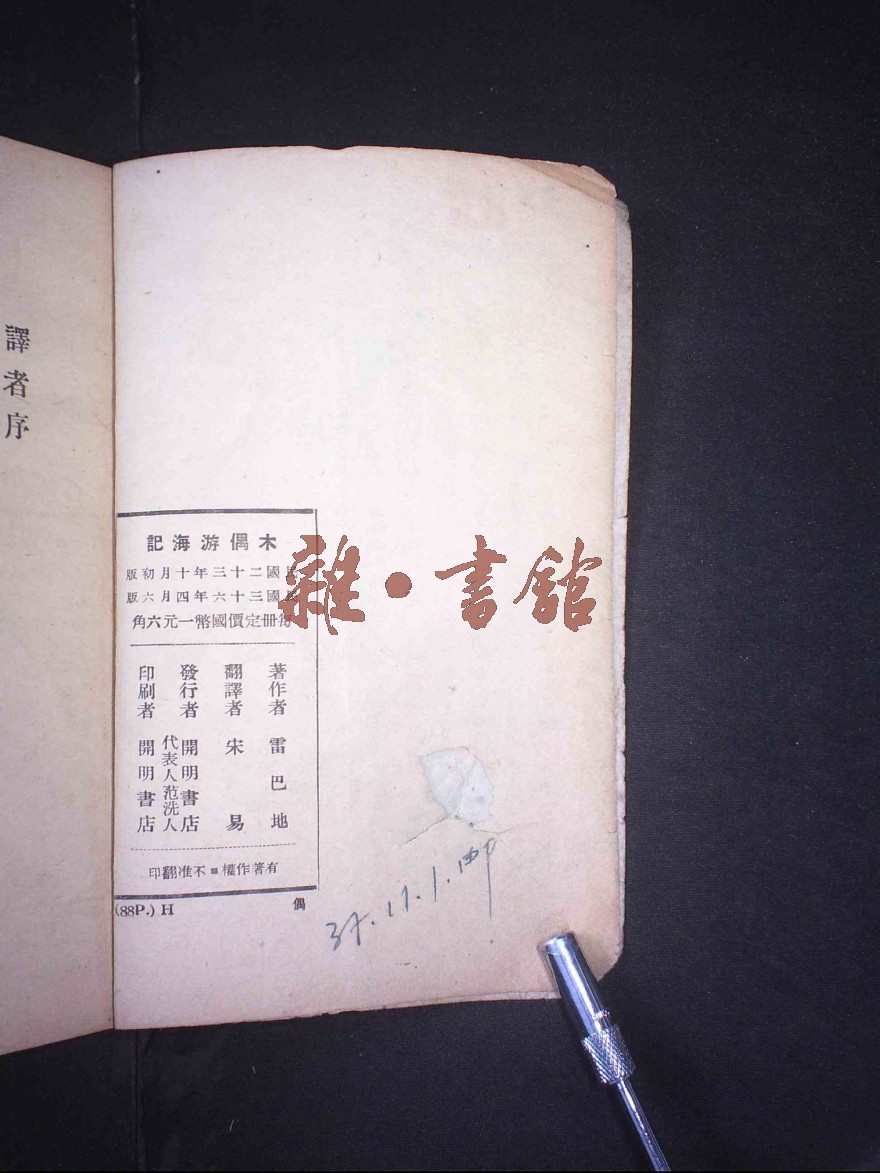 譯者序
木偶游海記
民國二十三年十月初版
民國三十六年四月六版
每冊定價國幣一元六角
著作者 雷巴地
翻譯者 宋易
發行者 開明書店
代表人范洗人
印刷者 開明書店
有著作權■不准翻印
(88P.) H 偶
雜·書館
37.11.1.